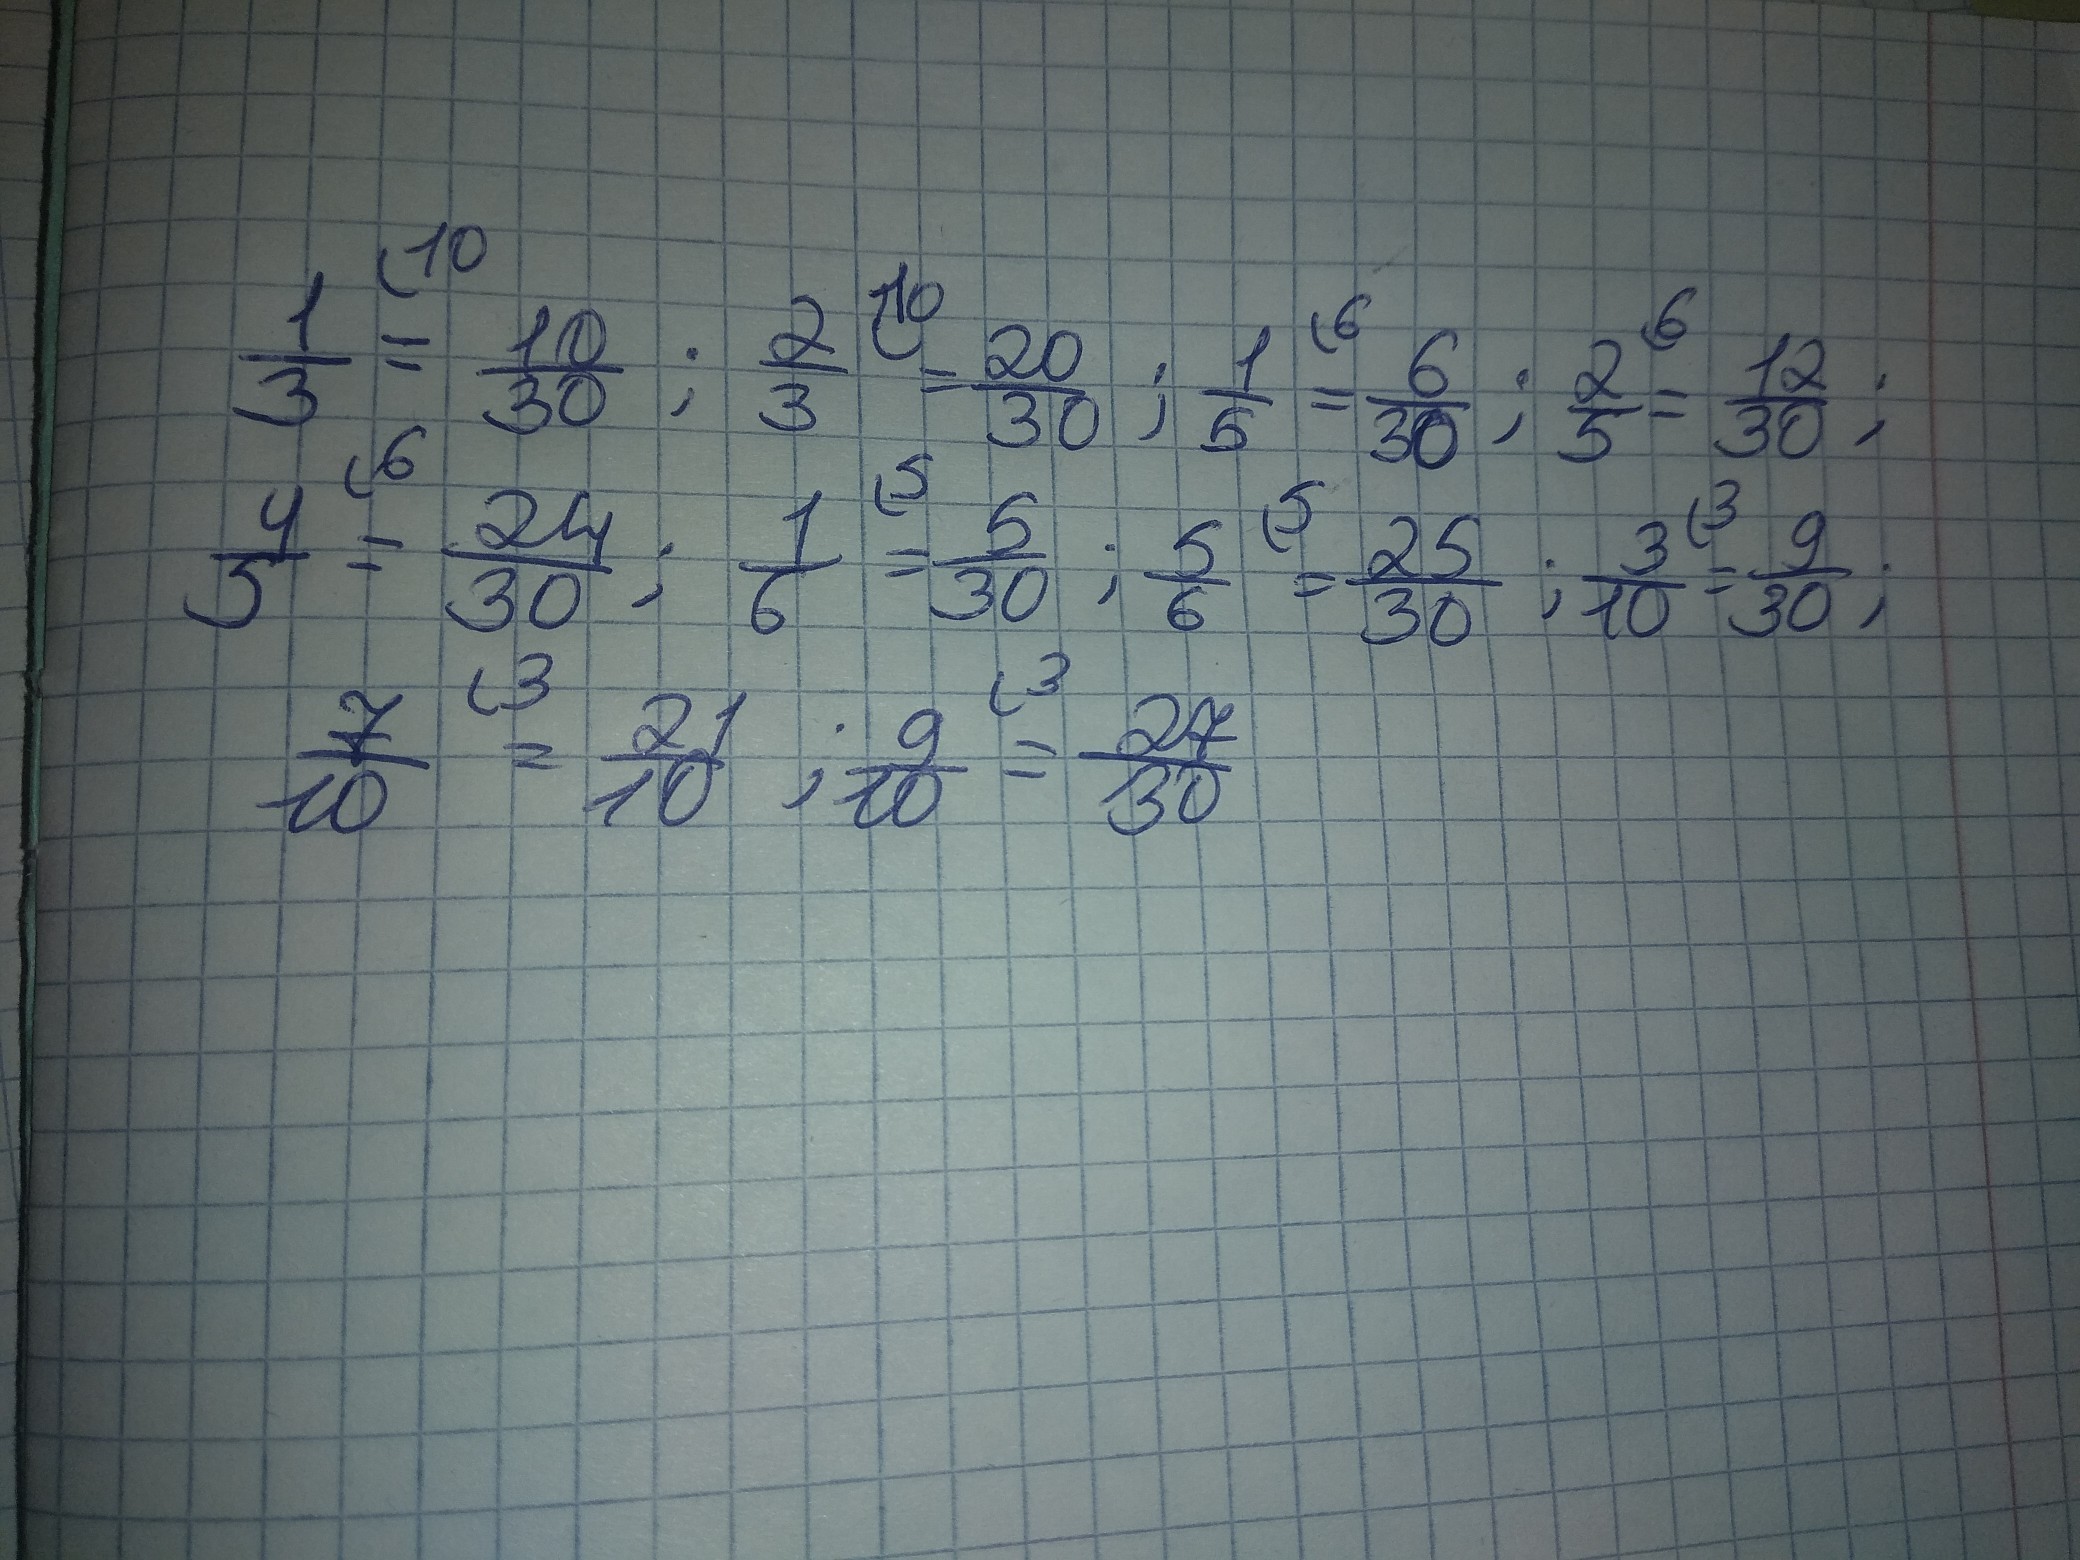 1/3 (10 = 10/30 ; 2/3 (10 = 20/30 ; 1/5 (6 = 6/30 ; 2/5 (6 = 12/30 ;
4/5 (6 = 24/30 ; 1/6 (5 = 5/30 ; 5/6 (5 = 25/30 ; 3/10 (3 = 9/30 ;
7/10 (3 = 21/10 ; 9/10 (3 = 27/30